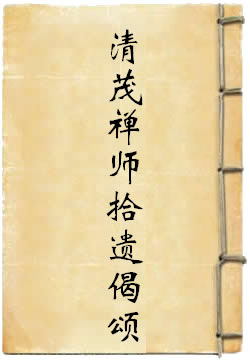 清茂禅师拾遗偈颂